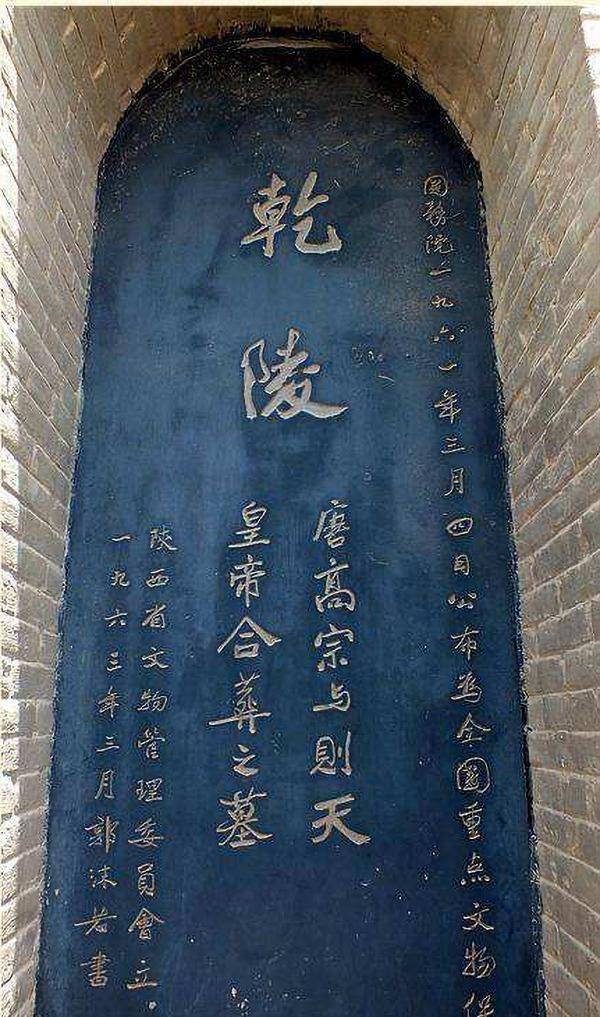 国务院一九六一年三月四日公布为全国重点文物保
乾陵
唐高宗与則天
皇帝合葬之墓
陕西省文物管理委員會立
一九六三年三月郭沫若書